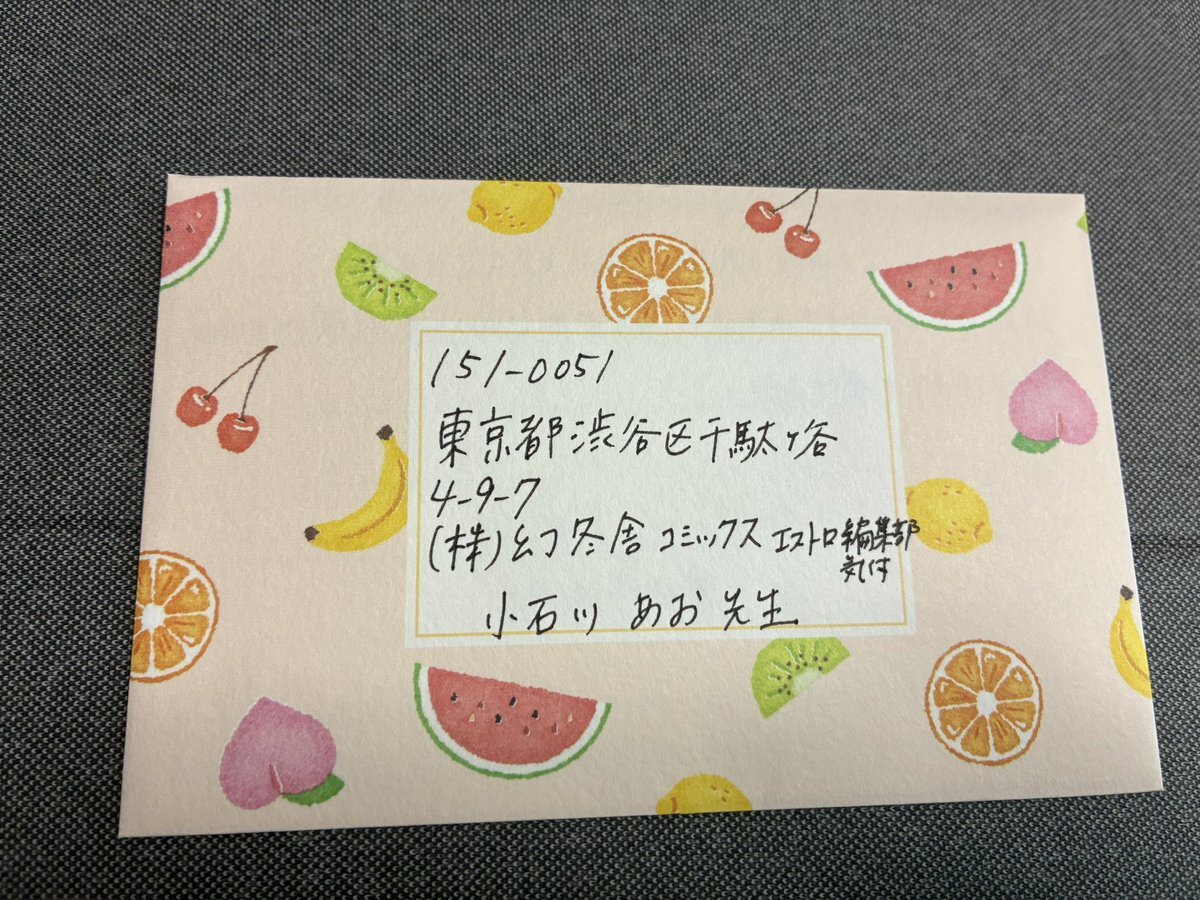 151-0051
東京都渋谷区千駄ヶ谷
4-9-7
(株)幻冬舎コミックス エストロ編集部
気付
小石川 あお 先生